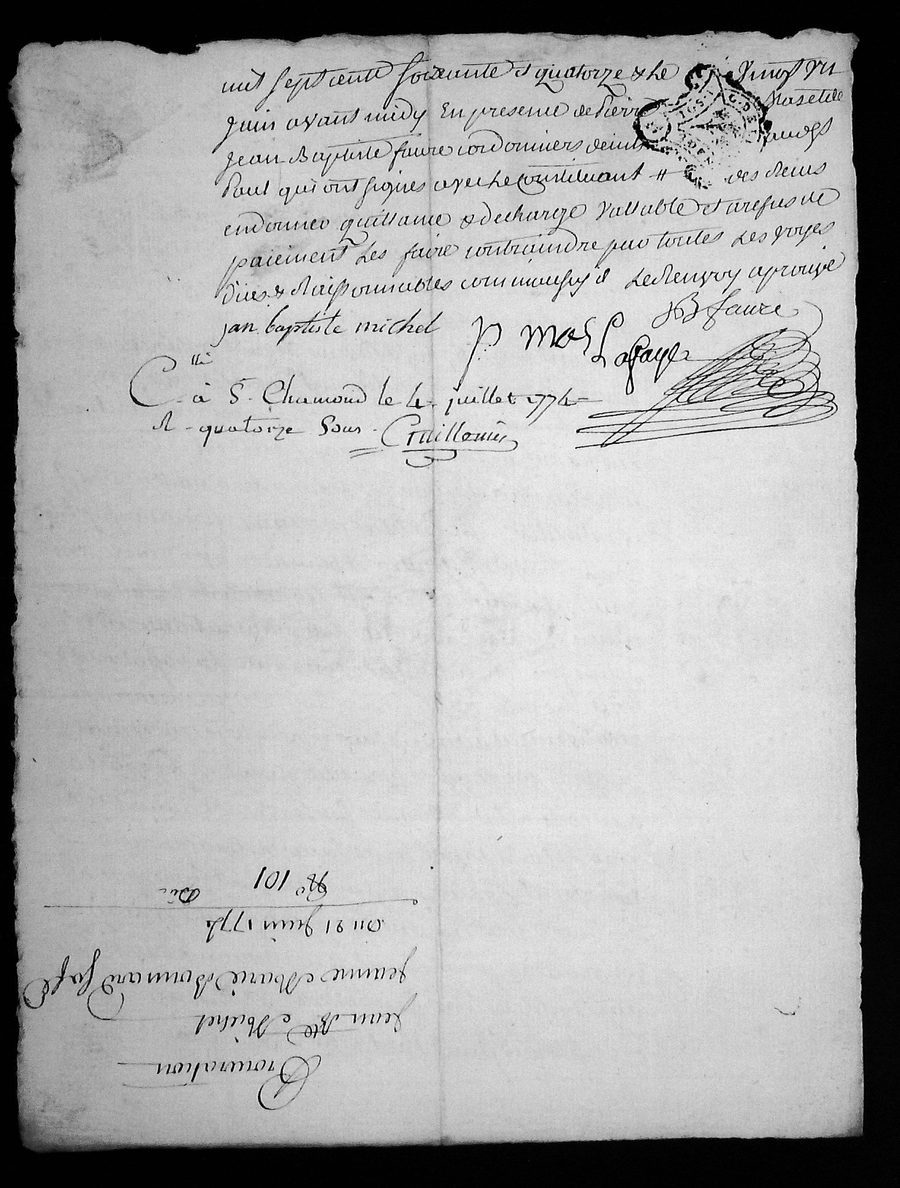 mil sept cent soixante et quatorze & le vingt un
juin avant midy En presence de Pierre
Jean Baptiste faure cordonniers de
Paul qui ont signes avec le constituant # des deniers
en donner quittance & decharge vallable et a refus de
paiement Les faire contraindre par toutes Les voyes
dues & Raisonnables Le Renvoy aprouvé
jan baptiste michel P. mas Lafaye JB faure
C
à St. Chamond le 4 juillet 1774
R. quatorze Sous
Procuration
Jean Bte Michel
Jeanne Marie Bonnard
Du 21 Juin 1774
No 101